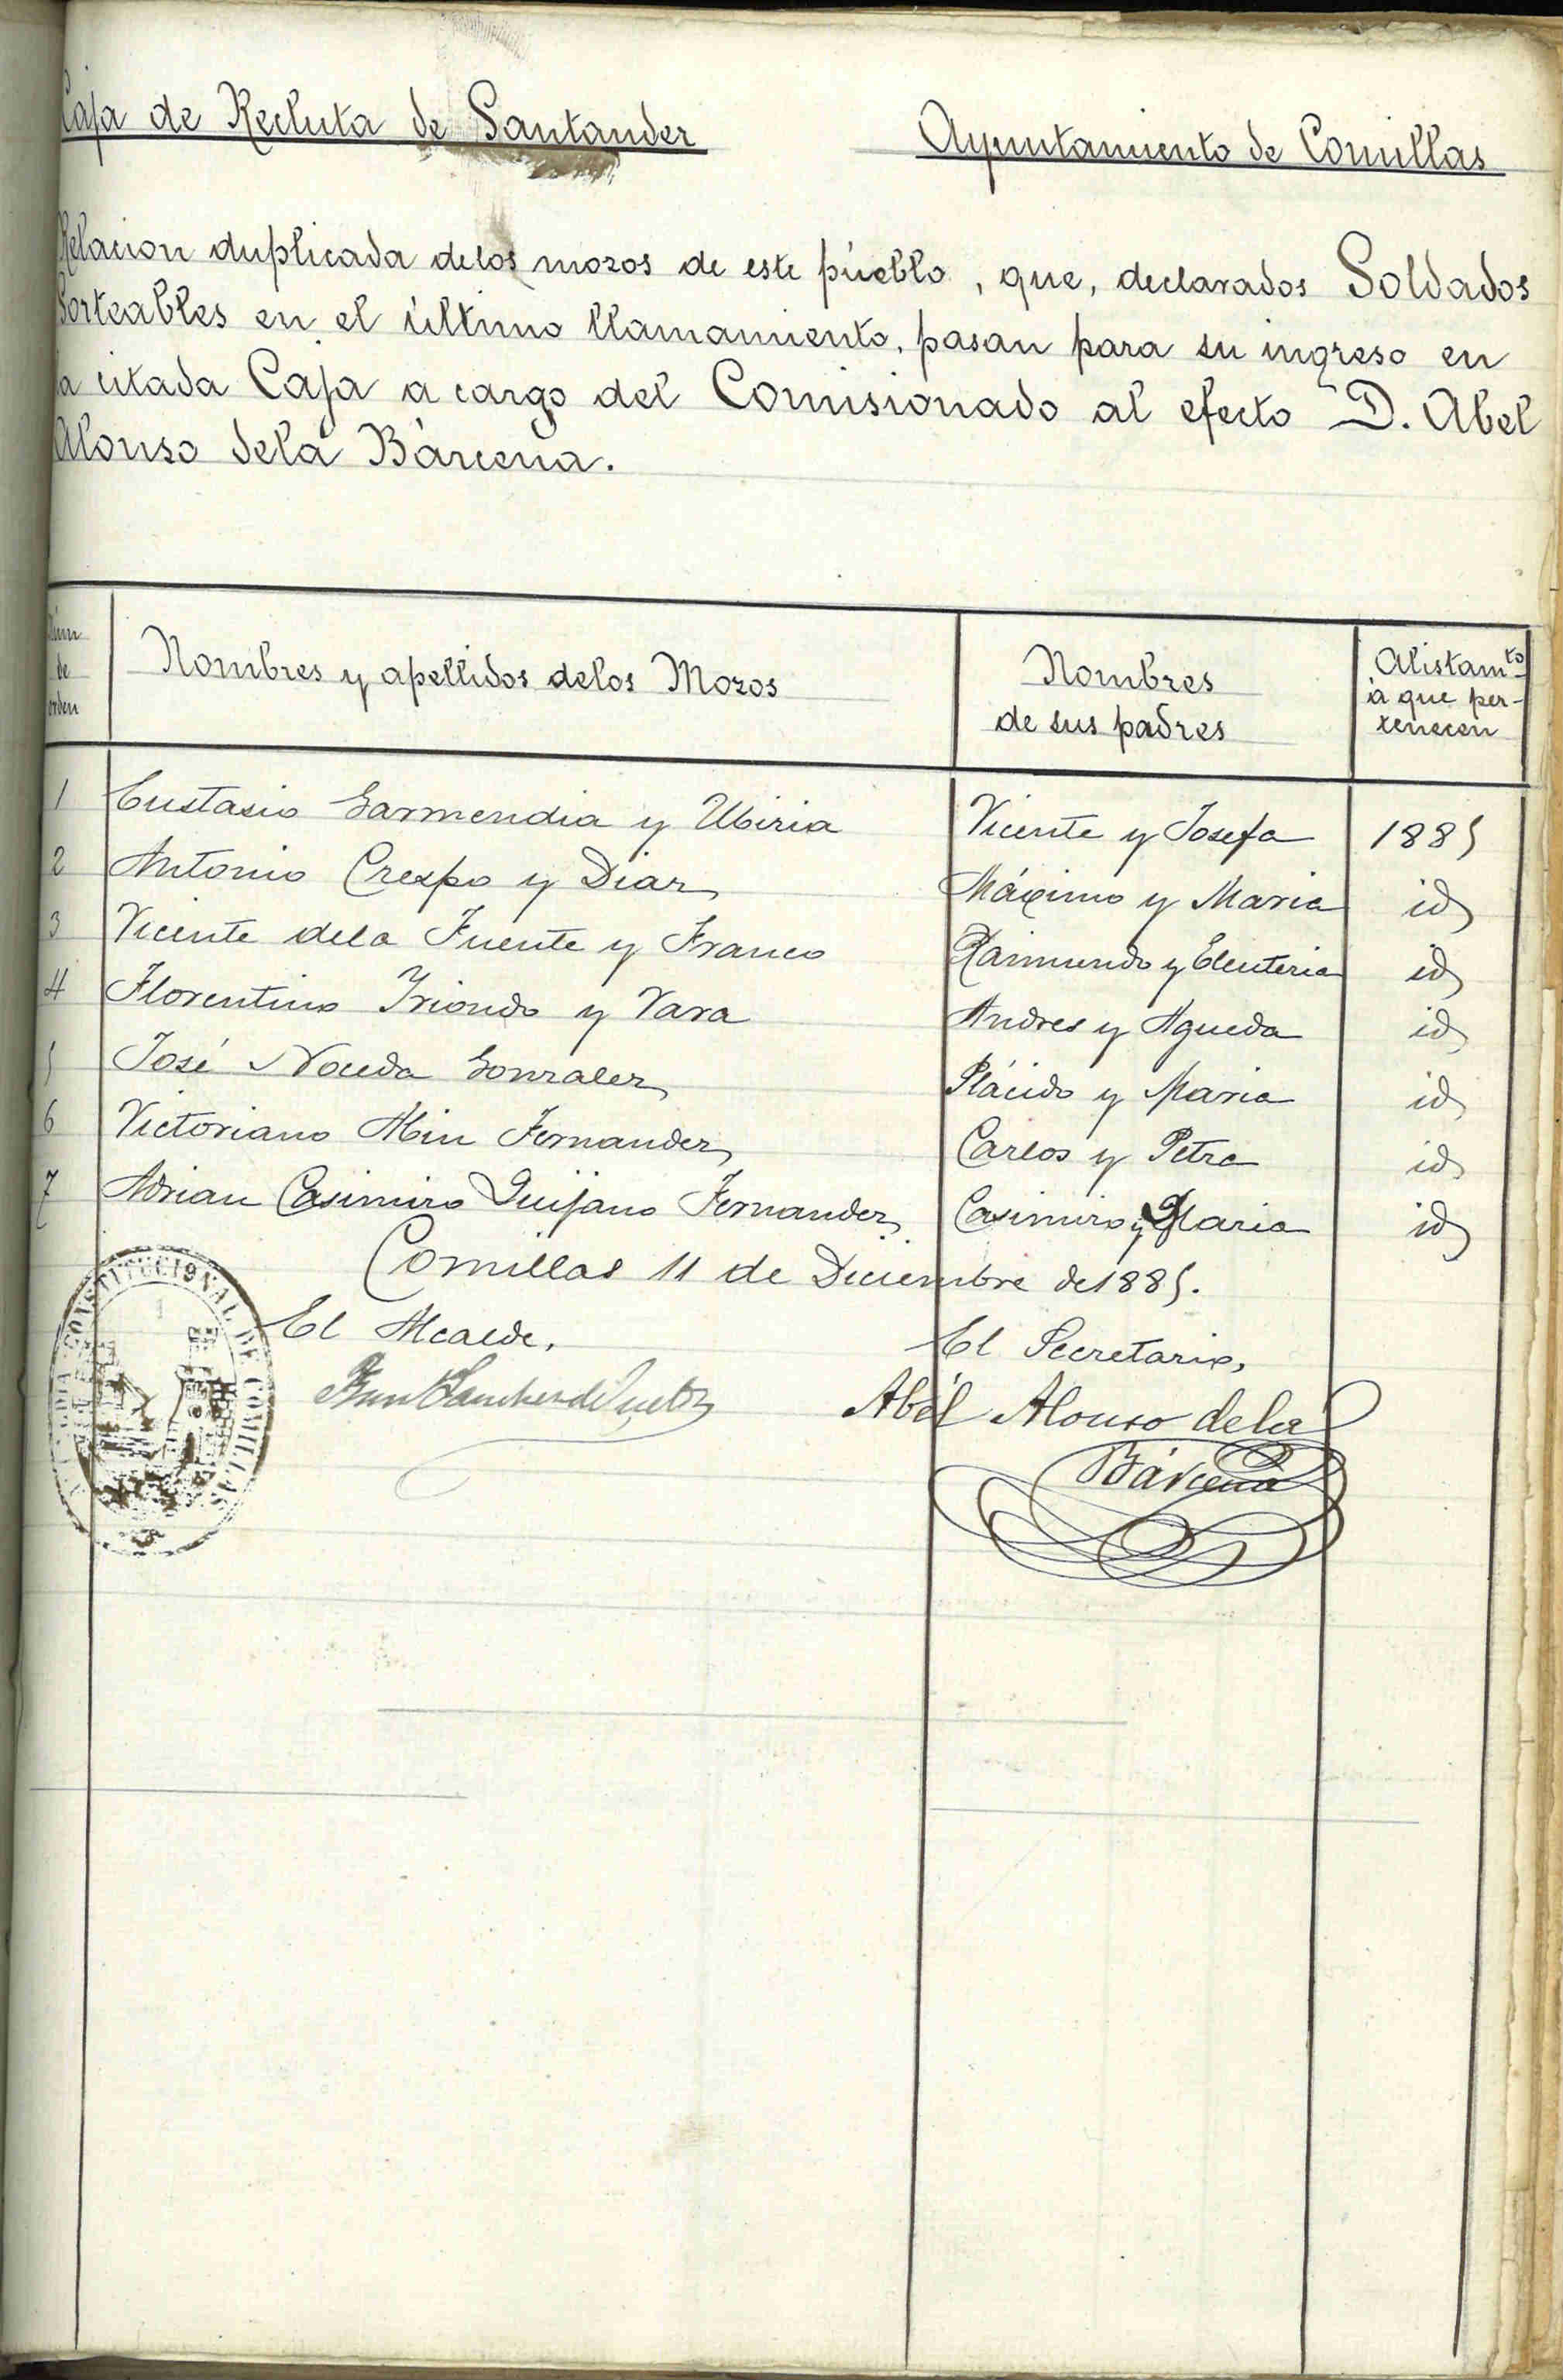 Caja de Recluta de Santander Ayuntamiento de Comillas
Relacion duplicada delos mozos de este pueblo, que, declarados Soldados
Sorteables en el último llamamiento, pasan para su ingreso en
la citada Caja a cargo del Comisionado al efecto D. Abel
Alonso dela Bárcena.
Núm de orden Nombres y apellidos delos Mozos Nombres de sus padres Alistamto á que per-tenecen
1 Eustasio Garmendia y Ubiria Vicente y Josefa 1885
2 Antonio Crespo y Diaz Máximo y Maria id
3 Vicente dela Fuente y Franco Raimundo y Eleuteria id
4 Florentino Iriondo y Vara Andres y Agueda id
5 José Noceda Gonzalez Plácido y Maria id
6 Victoriano Abin Fernandez Carlos y Petra id
7 Adrian Casimiro Quijano Fernandez Casimiro y Maria id
Comillas 11 de Diciembre de 1885.
El Alcalde, El Secretario,
Abél Alonso dela
Bárcena
CONSTITUCIONAL DE COMILLAS